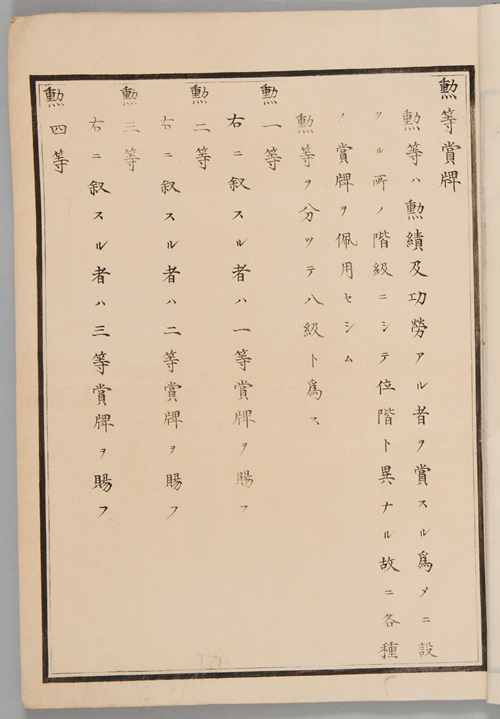 勲等賞牌
勲等ハ勲績及功労アル者ヲ賞スル為メニ設
クル所ノ階級ニシテ位階ト異ナル故ニ各種
ノ賞牌ヲ佩用セシム
勲等ヲ分ツテ八級ト為ス
勲一等
右ニ叙スル者ハ一等賞牌ヲ賜フ
勲二等
右ニ叙スル者ハ二等賞牌ヲ賜フ
勲三等
右ニ叙スル者ハ三等賞牌ヲ賜フ
勲四等